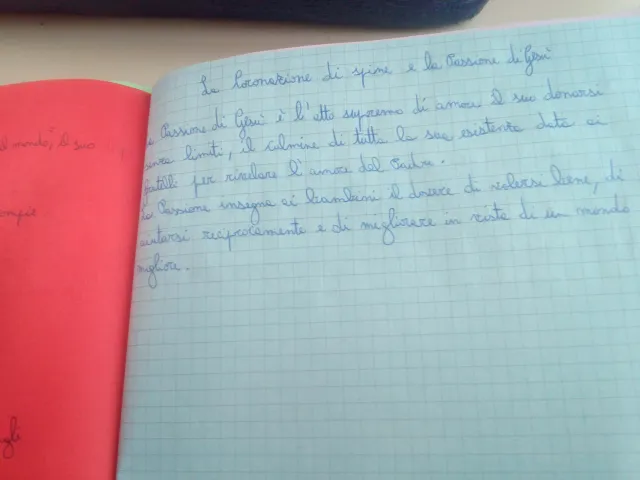 l mondo, Il suo
ompie
gli
La Coronazione di spine e la Passione di Gesù
a Passione di Gesù è l'atto supremo di amore Il suo donarsi
senza limiti, il culmine di tutta la sua esistenza data ai
fratelli per rivelare l'amore del Padre.
La Passione insegna ai bambini il dovere di volersi bene, di
aiutarsi reciprocamente e di migliorare in vista di un mondo
migliore.